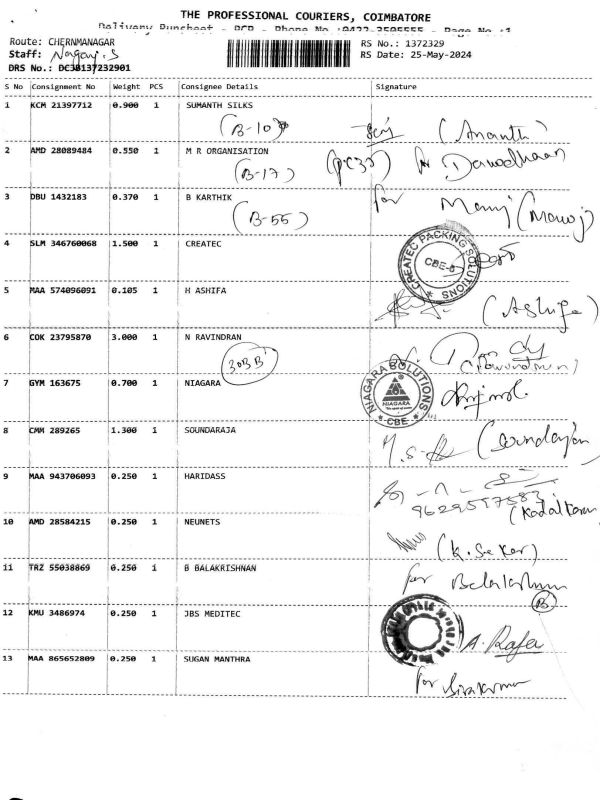 THE PROFESSIONAL COURIERS, COIMBATORE
Delivery Runsheet - PCP - Phone No :0422-3505555 - Page No :1
Route: CHERNMANAGAR
RS No.: 1372329
Staff: Nagaraj.S
RS Date: 25-May-2024
DRS No.: DC38137232901
S No Consignment No Weight PCS Consignee Details Signature
1 KCM 21397712 0.900 1 SUMANTH SILKS
(B-10) (Ananth)
2 AMD 28089484 0.550 1 M R ORGANISATION
(B-17) for Damodharan
3 DBU 1432183 0.370 1 B KARTHIK
(B-55) for Manoj (Manoj)
4 SLM 346760068 1.500 1 CREATEC
CREATEC PACKING SOLUTIONS
CBE-6
5 MAA 574096091 0.105 1 H ASHIFA
(Ashifa)
6 COK 23795870 3.000 1 N RAVINDRAN
30BB
7 GYM 163675 0.700 1 NIAGARA
NIAGARA SOLUTIONS
NIAGARA
CBE
8 CMM 289265 1.300 1 SOUNDARAJA
9 MAA 943706093 0.250 1 HARIDASS
9629597583
10 AMD 28584215 0.250 1 NEUNETS
(K. Sekar)
11 TRZ 55038869 0.250 1 B BALAKRISHNAN
for Balakrishnan
B
12 KMU 3486974 0.250 1 JBS MEDITEC
A. Rafea
13 MAA 865652809 0.250 1 SUGAN MANTHRA
for Sivakumar